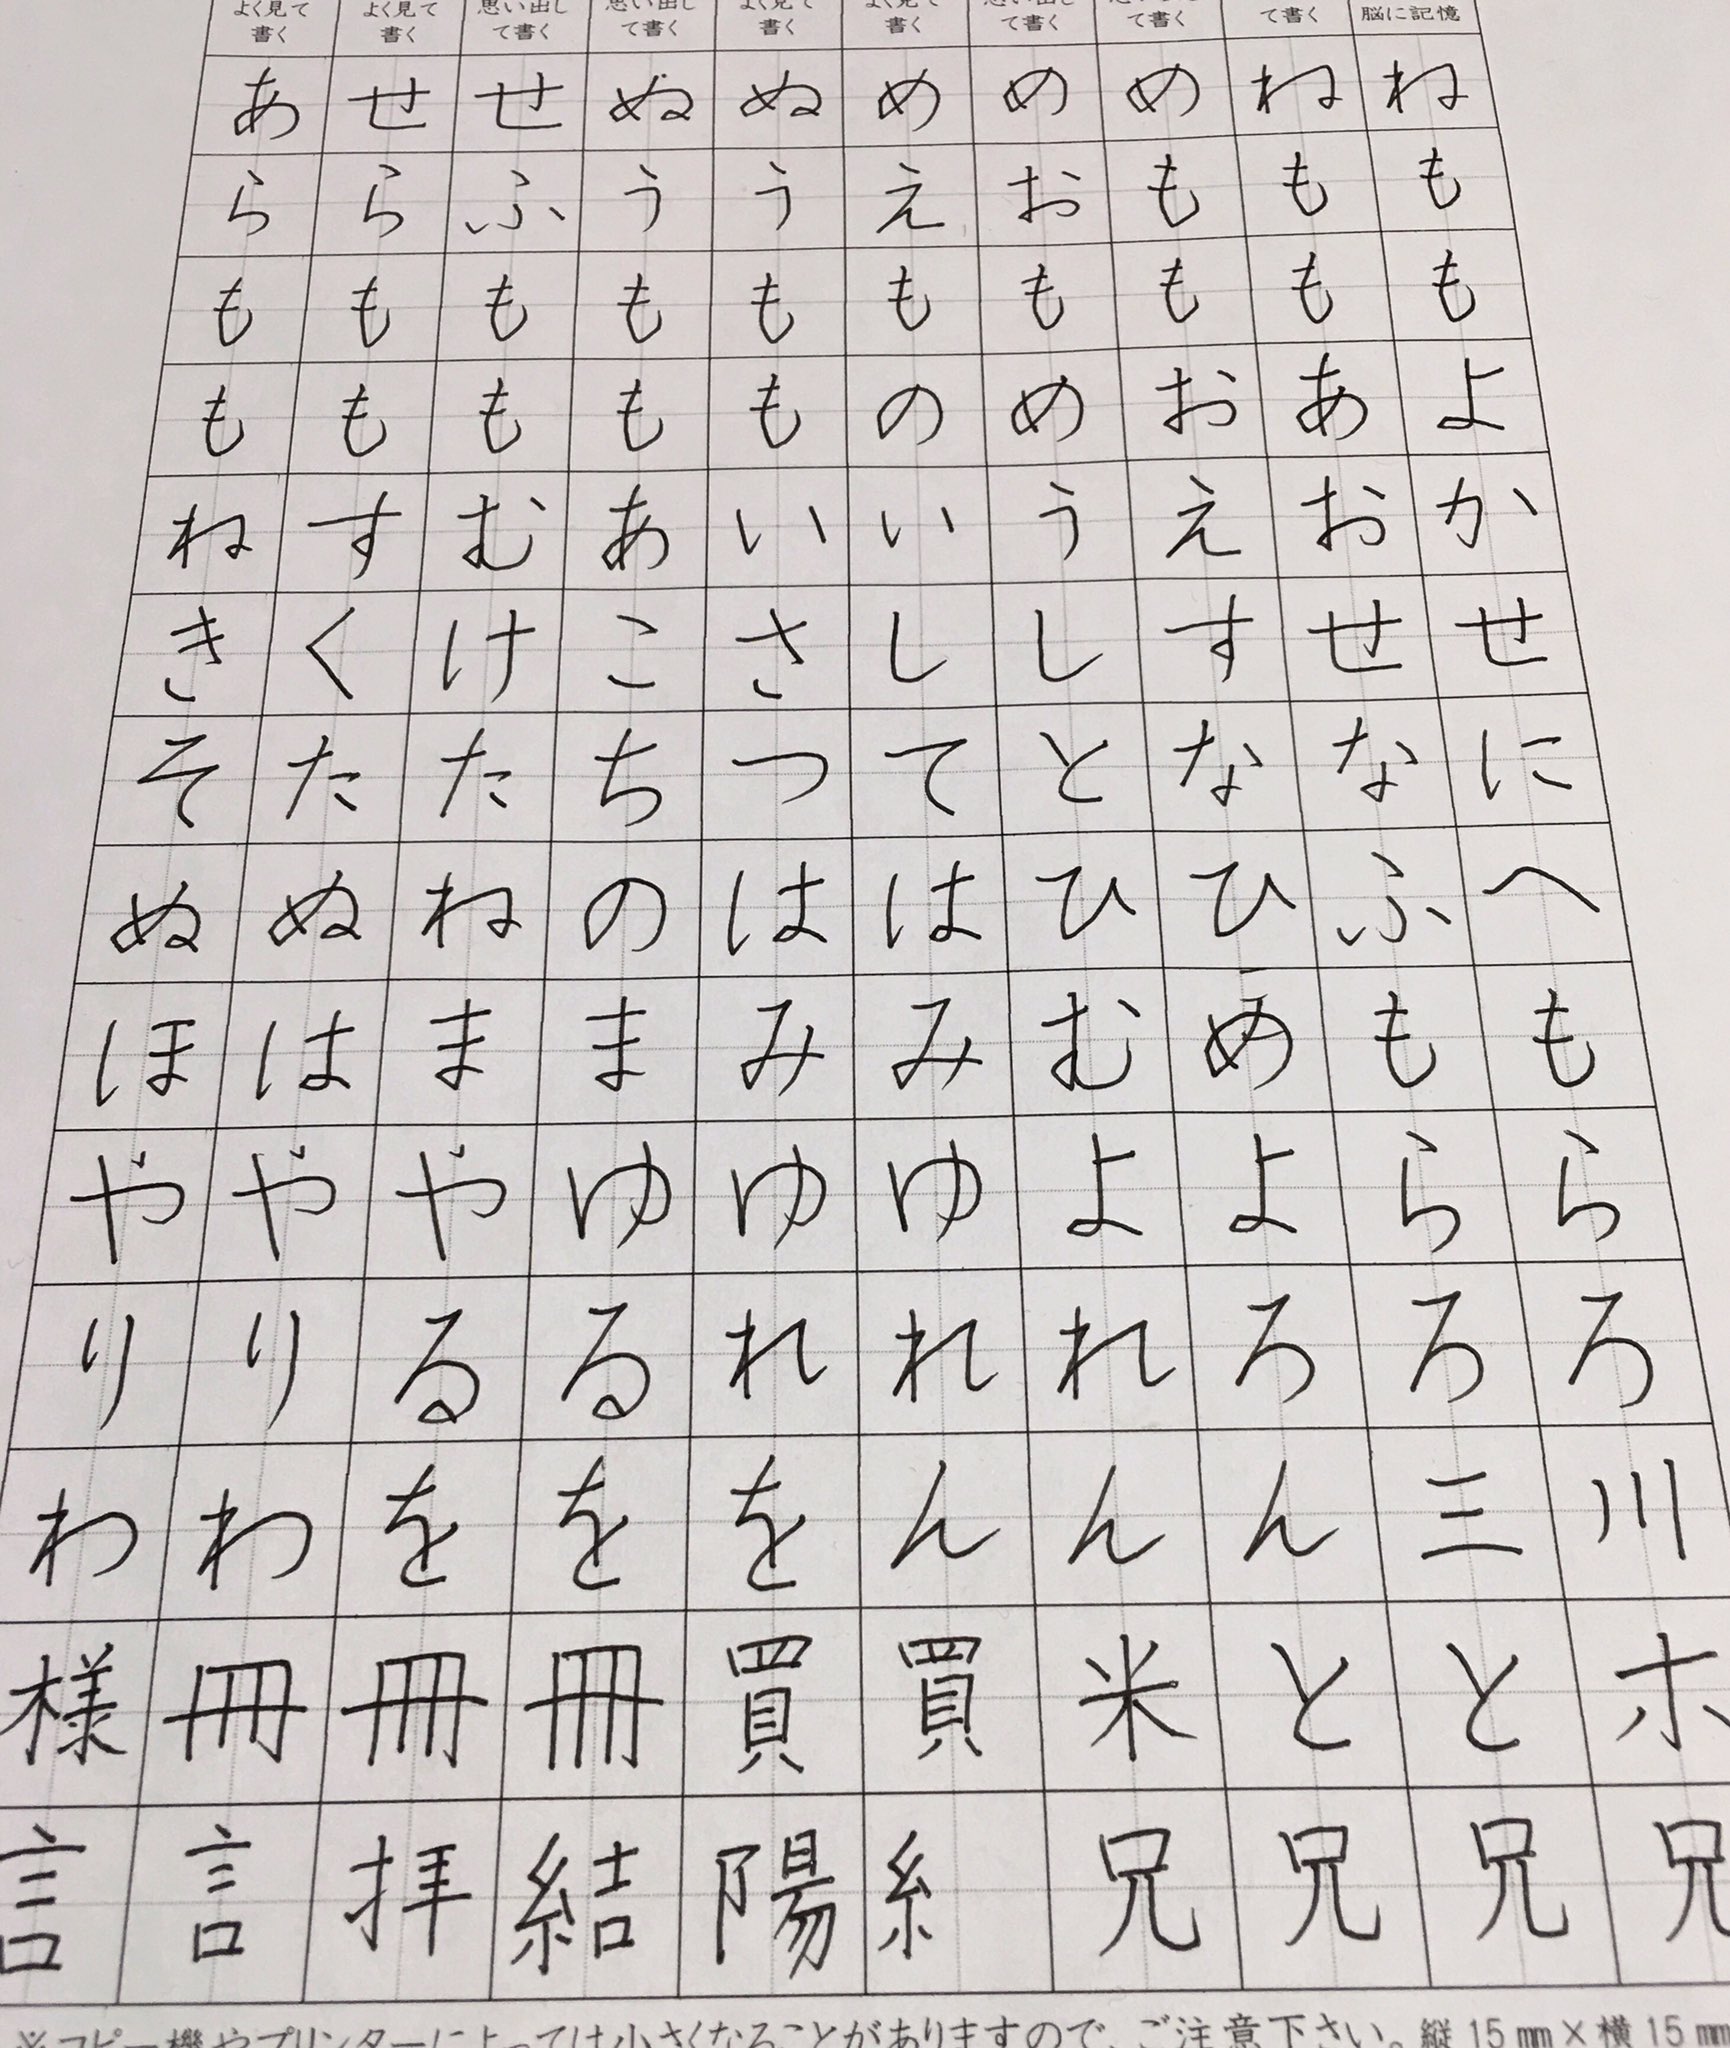 よく見て書く よく見て書く 思い出して書く 思い出して書く よく見て書く よく見て書く 思い出して書く て書く 脳に記憶
あ せ せ ぬ ぬ め め め ね ね
ら ら ふ う う え お も も も
も も も も も も も も も も
も も も も も の め お あ よ
ね す む あ い い う え お か
き く け こ さ し し す せ せ
そ た た ち つ て と な な に
ぬ ぬ ね の は は ひ ひ ふ へ
ほ は ま ま み み む め も も
や や や ゆ ゆ ゆ よ よ ら ら
り り る る れ れ れ ろ ろ ろ
わ わ を を を ん ん ん 三 川
様 冊 冊 冊 買 買 米 と と ホ
言 言 拝 結 陽 糸 兄 兄 兄 兄
※コピー機やプリンターによっては小さくなることがありますので、ご注意下さい。縦15mm×横15mm